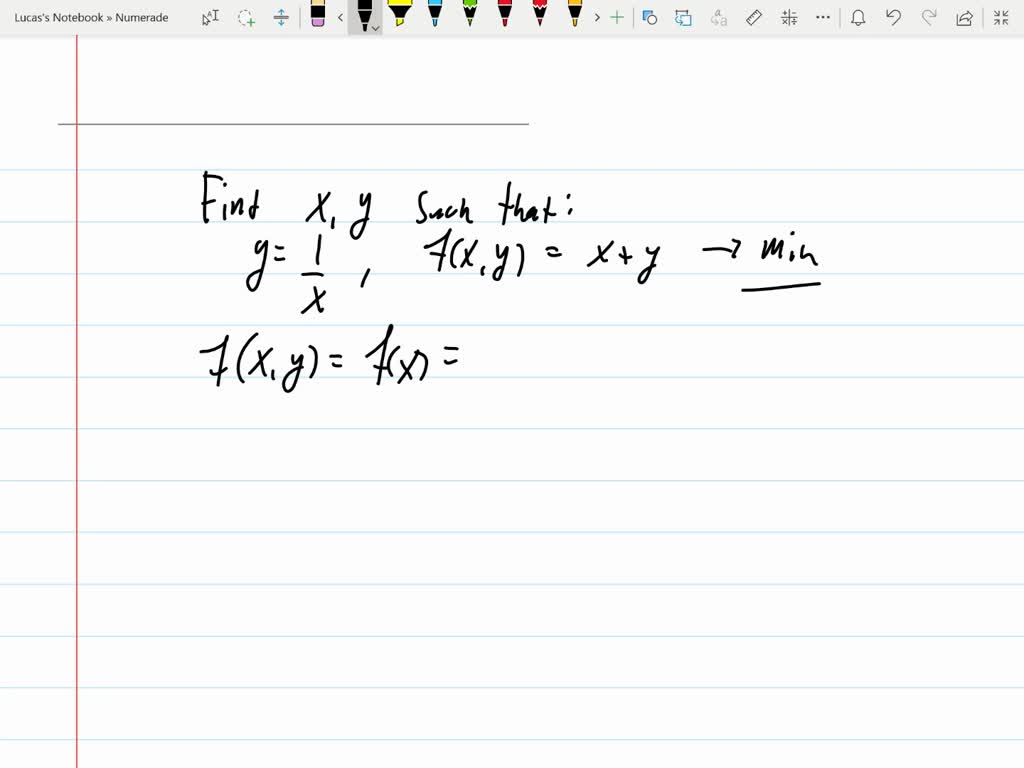 Lucas's Notebook » Numerade
Find x, y such that:
y = 1/x , f(x,y) = x+y → min
f(x,y) = f(x) =